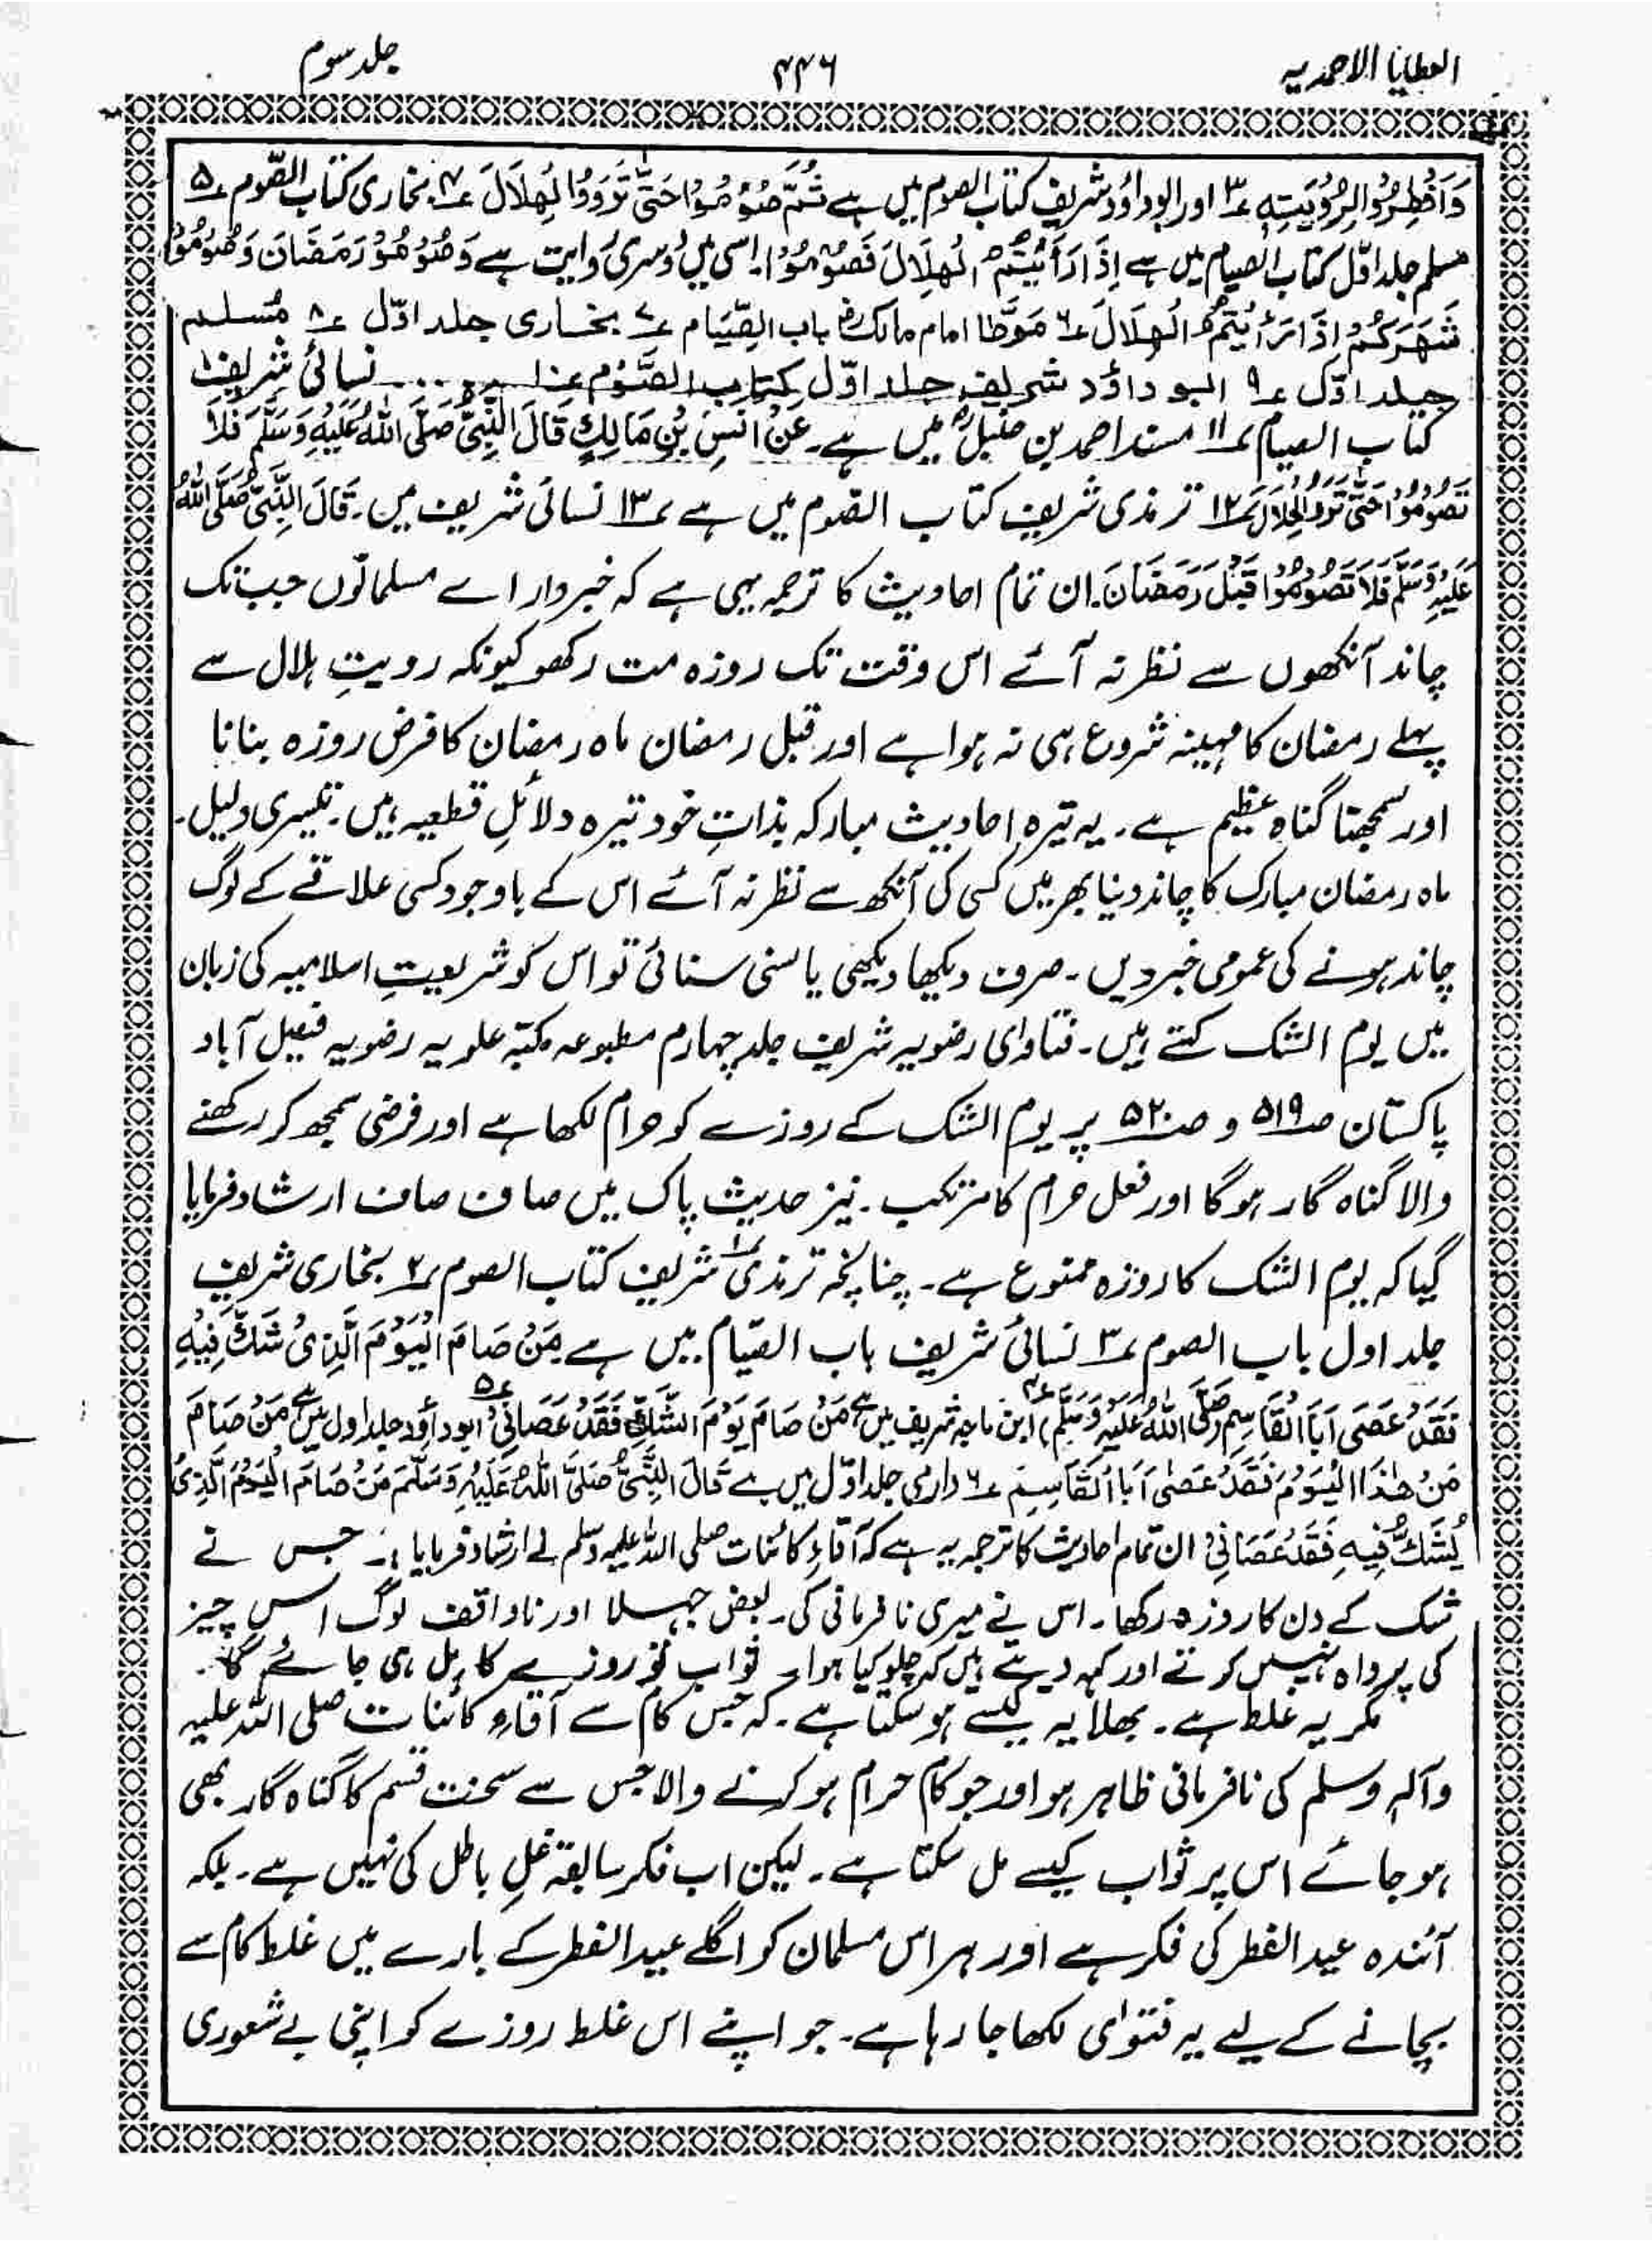 العطایا الاحمدیہ ۴۴۶ جلد سوم
وَاَفْطِرُوْا لِرُؤْیَتِہٖ ۳؎ اور ابوداؤد شریف کتاب الصوم میں ہے ثُمَّ صُوْمُوْا حَتّٰی تَرَوُا الْہِلَالَ ۴؎ بخاری کتاب الصّوم ۵؎
مسلم جلد اوّل کتاب الصیام میں ہے اِذَا رَأَیْتُمُ الْہِلَالَ فَصُوْمُوْا۔ اسی میں دُوسری روایت ہے وَصُوْمُوْا رَمَضَانَ وَصُوْمُوْا
شَہَرَکُمْ اِذَا رَأَیْتُمُ الْہِلَالَ ۶؎ مَوَطَّا امام مالک باب الصِّیَام ۷؎ بخاری جلد اوّل ۸؎ مُسلم
جلد اوّل ۹؎ ابو داؤد شریف جلد اوّل کتاب الصَّوْم ۱۰؎ .... نسائی شریف
کتاب الصیام ۱۱؎ مسند احمد بن حنبل میں ہے۔ عَنْ اَنَسِ بْنِ مَالِکٍ قَالَ النَّبِیُّ صَلَّی اللہُ عَلَیْہِ وَسَلَّمَ فَلَا
تَصُوْمُوْا حَتّٰی تَرَوُا الْہِلَالَ ۱۲؎ ترمذی شریف کتاب الصّوم میں ہے ۱۳؎ نسائی شریف میں۔ قَالَ النَّبِیُّ صَلَّی اللہُ
عَلَیْہِ وَسَلَّمَ فَلَا تَصُوْمُوْا قَبْلَ رَمَضَانَ۔ ان تمام احادیث کا ترجمہ یہی ہے کہ خبردار اے مسلمانوں جب تک
چاند آنکھوں سے نظر نہ آئے اس وقت تک روزہ مت رکھو کیونکہ رویتِ ہلال سے
پہلے رمضان کا مہینہ شروع ہی نہ ہوا ہے اور قبل رمضان ماہ رمضان کا فرض روزہ بنانا
اور سمجھنا گناہ عظیم ہے۔ یہ تیرہ احادیث مبارکہ بذاتِ خود تیرہ دلائلِ قطعیہ ہیں۔ تیسری دلیل۔
ماہ رمضان مبارک کا چاند دنیا بھر میں کسی کی آنکھ سے نظر نہ آئے اس کے باوجود کسی علاقے کے لوگ
چاند ہونے کی عمومی خبر دیں۔ صرف دیکھا دیکھی یا سنی سنائی تو اس کو شریعتِ اسلامیہ کی زبان
میں یوم الشک کہتے ہیں۔ فتاوای رضویہ شریف جلد چہارم مطبوعہ مکتبہ علویہ رضویہ فیصل آباد
پاکستان صـ۵۱۹ و صـ۵۲۰ پر یوم الشک کے روزے کو حرام لکھا ہے اور فرضی سمجھ کر رکھنے
والا گناہ گار ہوگا اور فعل حرام کا مرتکب۔ نیز حدیث پاک میں صاف صاف ارشاد فرمایا
گیا کہ یوم الشک کا روزہ ممنوع ہے۔ چنانچہ ترمذی ۱؎ شریف کتاب الصوم ۲؎ بخاری شریف
جلد اول باب الصوم ۳؎ نسائی شریف باب الصّیام میں ہے مَنْ صَامَ الْیَوْمَ الَّذِیْ شَکَّ فِیْہِ
فَقَدْ عَصَی اَبَا الْقَاسِمِ (صَلَّی اللہُ عَلَیْہِ وَسَلَّمَ) ۴؎ ابن ماجہ شریف میں ہے مَنْ صَامَ یَوْمَ الشَّکِّ فَقَدْ عَصَانِیْ ۵؎ ابوداؤد جلد اول میں ہے مَنْ صَامَ
مَنْ ھٰذَا الْیَوْمَ فَقَدْ عَصٰی اَبَا الْقَاسِمِ ۶؎ دارمی جلد اوّل میں ہے قَالَ النَّبِیُّ صَلَّی اللہُ عَلَیْہِ وَسَلَّمَ مَنْ صَامَ الْیَوْمَ الَّذِیْ
یُشَکُّ فِیْہِ فَقَدْ عَصَانِیْ ان تمام احادیث کا ترجمہ یہ ہے کہ آقاءِ کائنات صلی اللہ علیہ وسلم نے ارشاد فرمایا :۔ جس نے
شک کے دن کا روزہ رکھا۔ اس نے میری نافرمانی کی۔ بعض جہلا اور ناواقف لوگ اس چیز
کی پرواہ نہیں کرتے اور کہہ دیتے ہیں کہ چلو کیا ہوا۔ ثواب تو روزے کا مل ہی جائے گا۔
مگر یہ غلط ہے۔ بھلا یہ کیسے ہو سکتا ہے۔ کہ جس کام سے آقاءِ کائنات صلی اللہ علیہ
وآلہ وسلم کی نافرمانی ظاہر ہو اور جو کام حرام ہو کرنے والا جس سے سخت قسم کا گناہ گار بھی
ہو جائے اس پر ثواب کیسے مل سکتا ہے۔ لیکن اب فکر سابقہ غلِ باطل کی نہیں ہے۔ بلکہ
آئندہ عید الفطر کی فکر ہے اور ہر اس مسلمان کو اگلے عید الفطر کے بارے میں غلط کام سے
بچانے کے لیے یہ فتوای لکھا جا رہا ہے۔ جو اپنے اس غلط روزے کو اپنی بے شعوری